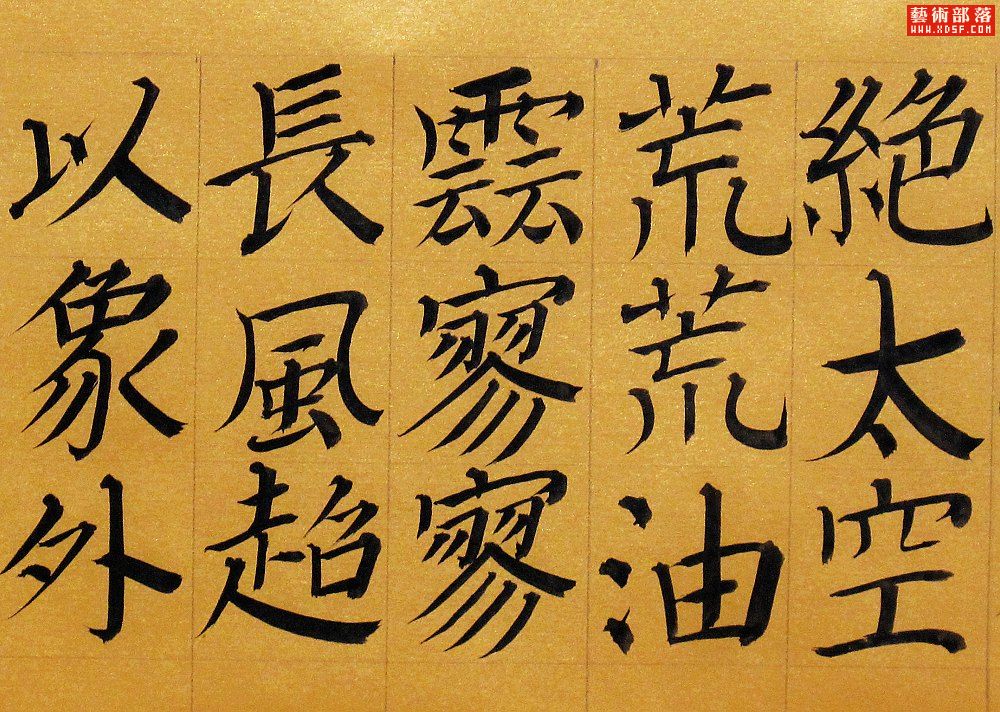 藝術部落
WWW.XDSF.COM
絶太空
荒荒油
雲寥寥
長風超
以象外